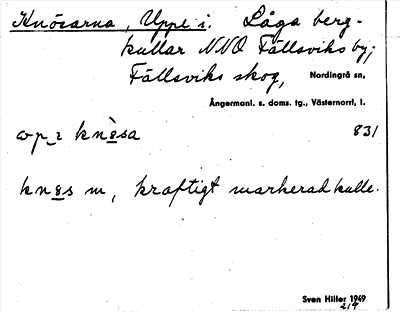 Knösarna, Uppe i. Låga berg-
kullar NNO Fällsviks by;
Fällsviks skog, Nordingrå sn,
Ångermanl. s. doms. tg., Västernorrl, l.
831
m, kraftigt markerad kulle.
Sven Hiller 1949